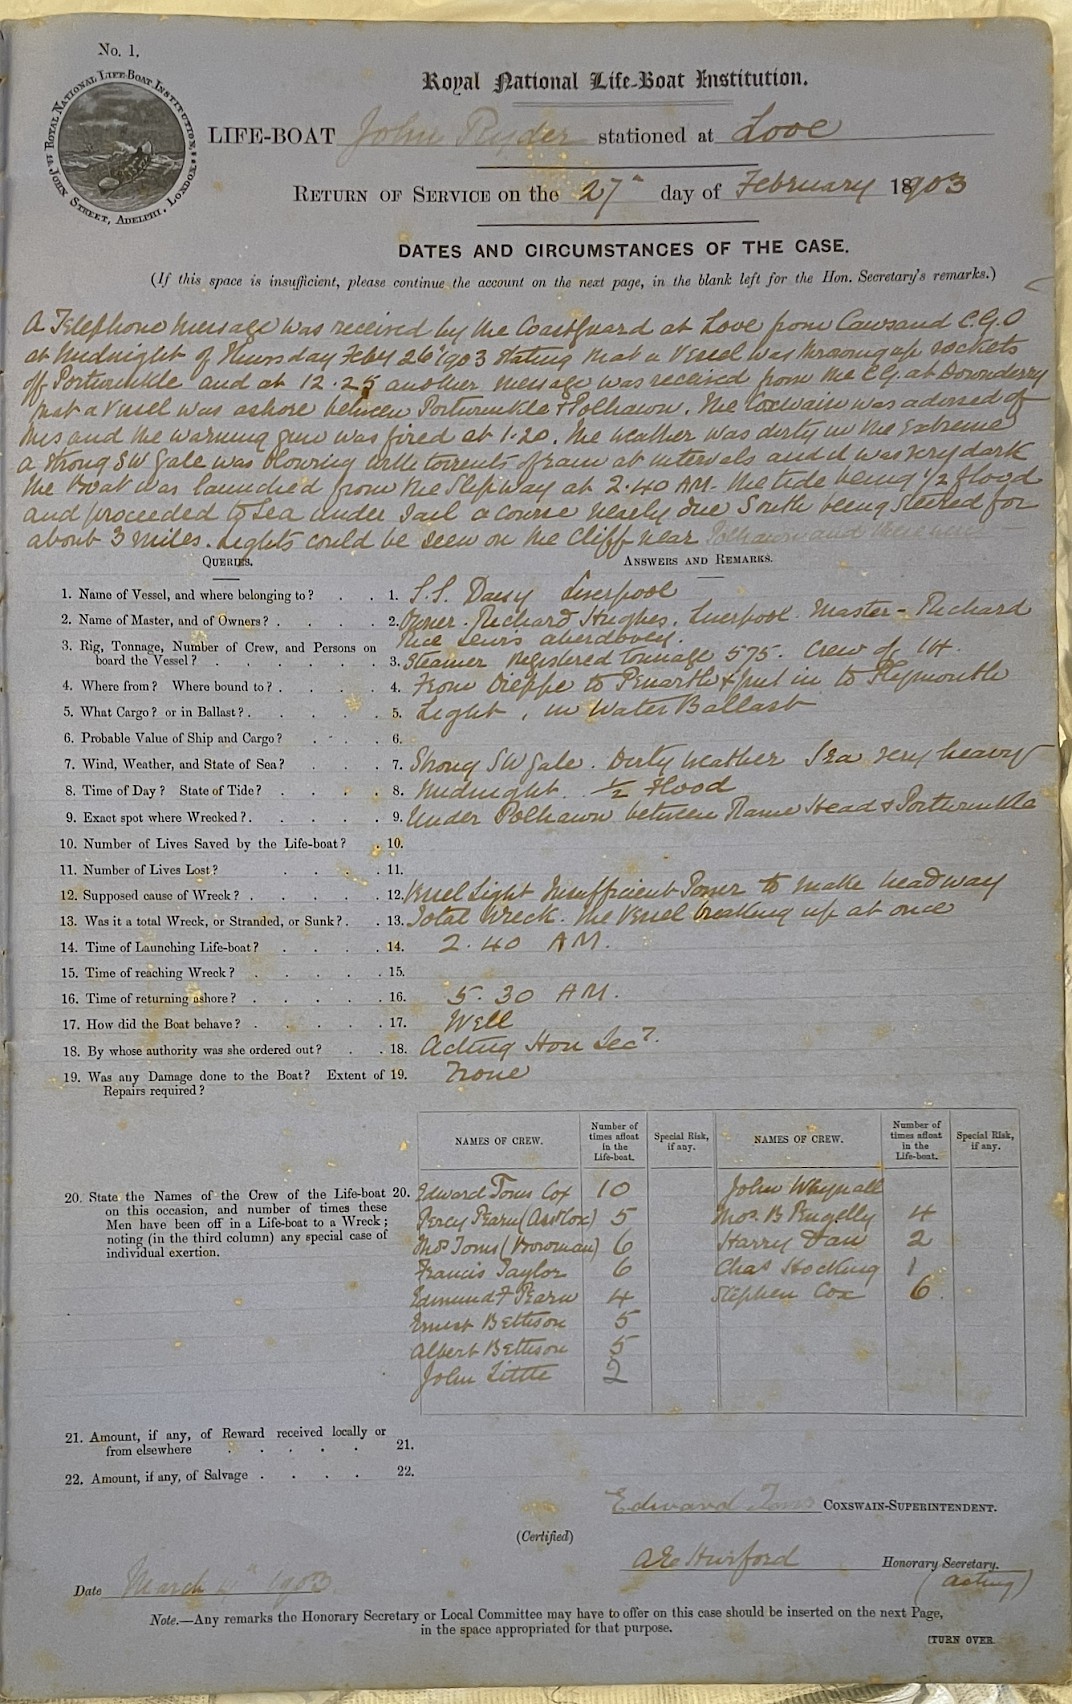 No. 1.
ROYAL NATIONAL LIFE-BOAT INSTITUTION.
JOHN STREET, ADELPHI, LONDON
Royal National Life-Boat Institution.
LIFE-BOAT John Ryder stationed at Looe
RETURN OF SERVICE on the 27th day of February 18903
DATES AND CIRCUMSTANCES OF THE CASE.
(If this space is insufficient, please continue the account on the next page, in the blank left for the Hon. Secretary's remarks.)
A Telephone message was received by the Coastguard at Looe from Cawsand C.G.O
at Midnight of Thursday Feby 26th 1903 stating that a Vessel was throwing up rockets
off Portwrinkle and at 12.25 another message was received from the C.G. at Downderry
that a vessel was ashore between Portwrinkle & Polhawn. The Coxwain was advised of
this and the warning gun was fired at 1.20. The weather was dirty in the extreme
a strong SW Gale was blowing with torrents of rain at intervals and it was very dark
The boat was launched from the Slipway at 2.40 AM. the tide being 1/2 flood
and proceeded to Sea under Sail a course nearly due South being steered for
about 3 miles. Lights could be seen on the Cliff near Polhawn and
QUERIES. ANSWERS AND REMARKS.
1. Name of Vessel, and where belonging to? 1. S.S. Daisy Liverpool
2. Name of Master, and of Owners? 2. Owner. Richard Hughes. Liverpool. Master - Richard
Rice Lewis aberdovey.
3. Rig, Tonnage, Number of Crew, and Persons on board the Vessel? 3. Steamer Registered tonnage 575. Crew of 14.
4. Where from? Where bound to? 4. From Dieppe to Penarth & put in to Plymouth
5. What Cargo? or in Ballast? 5. Light, in Water Ballast
6. Probable Value of Ship and Cargo? 6.
7. Wind, Weather, and State of Sea? 7. Strong SW Gale. Dirty weather Sea very heavy
8. Time of Day? State of Tide? 8. Midnight. 1/2 Flood
9. Exact spot where Wrecked? 9. Under Polhawn between Rame Head & Portwrinkle
10. Number of Lives Saved by the Life-boat? 10.
11. Number of Lives Lost? 11.
12. Supposed cause of Wreck? 12. Vessel Light Insufficient Power to make headway
13. Was it a total Wreck, or Stranded, or Sunk? 13. Total Wreck. The Vessel breaking up at once
14. Time of Launching Life-boat? 14. 2.40 AM.
15. Time of reaching Wreck? 15.
16. Time of returning ashore? 16. 5.30 AM.
17. How did the Boat behave? 17. Well
18. By whose authority was she ordered out? 18. Acting Hon Secy.
19. Was any Damage done to the Boat? Extent of Repairs required? 19. None
NAMES OF CREW. Number of times afloat in the Life-boat. Special Risk, if any. NAMES OF CREW. Number of times afloat in the Life-boat. Special Risk, if any.
20. State the Names of the Crew of the Life-boat 20.
on this occasion, and number of times these
Men have been off in a Life-boat to a Wreck;
noting (in the third column) any special case of
individual exertion.
Edward Toms Cox 10 John Whynall
Percy Pearn (Asst Cox) 5 Thos. B Pengelly 4
Thos Toms (Bowman) 6 Harry Dan 2
Francis Taylor 6 Chas Hocking 1
Edmund F Pearn 4 Stephen Cox 6
Ernest Bettison 5
Albert Bettison 5
John Little 2
21. Amount, if any, of Reward received locally or
from elsewhere 21.
22. Amount, if any, of Salvage 22.
Edward Toms COXSWAIN-SUPERINTENDENT.
(Certified)
AE Hurford Honorary Secretary.
(acting)
Date March 4th 1903
Note.—Any remarks the Honorary Secretary or Local Committee may have to offer on this case should be inserted on the next Page,
in the space appropriated for that purpose.
[TURN OVER